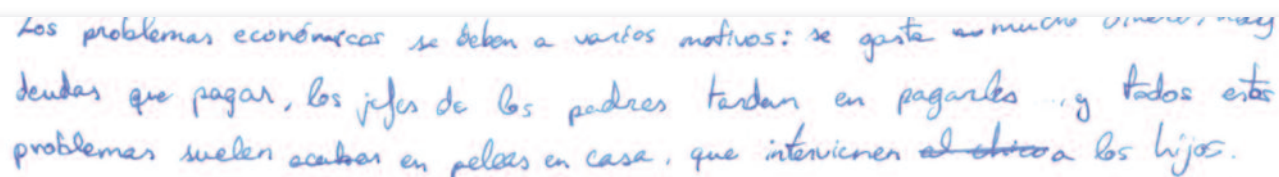 Los problemas económicos se deben a varios motivos: se gasta mucho dinero, hay
deudas que pagar, los jefes de los padres tardan en pagarles.. y todos estos
problemas suelen acabar en peleas en casa, que intervienen a los hijos.